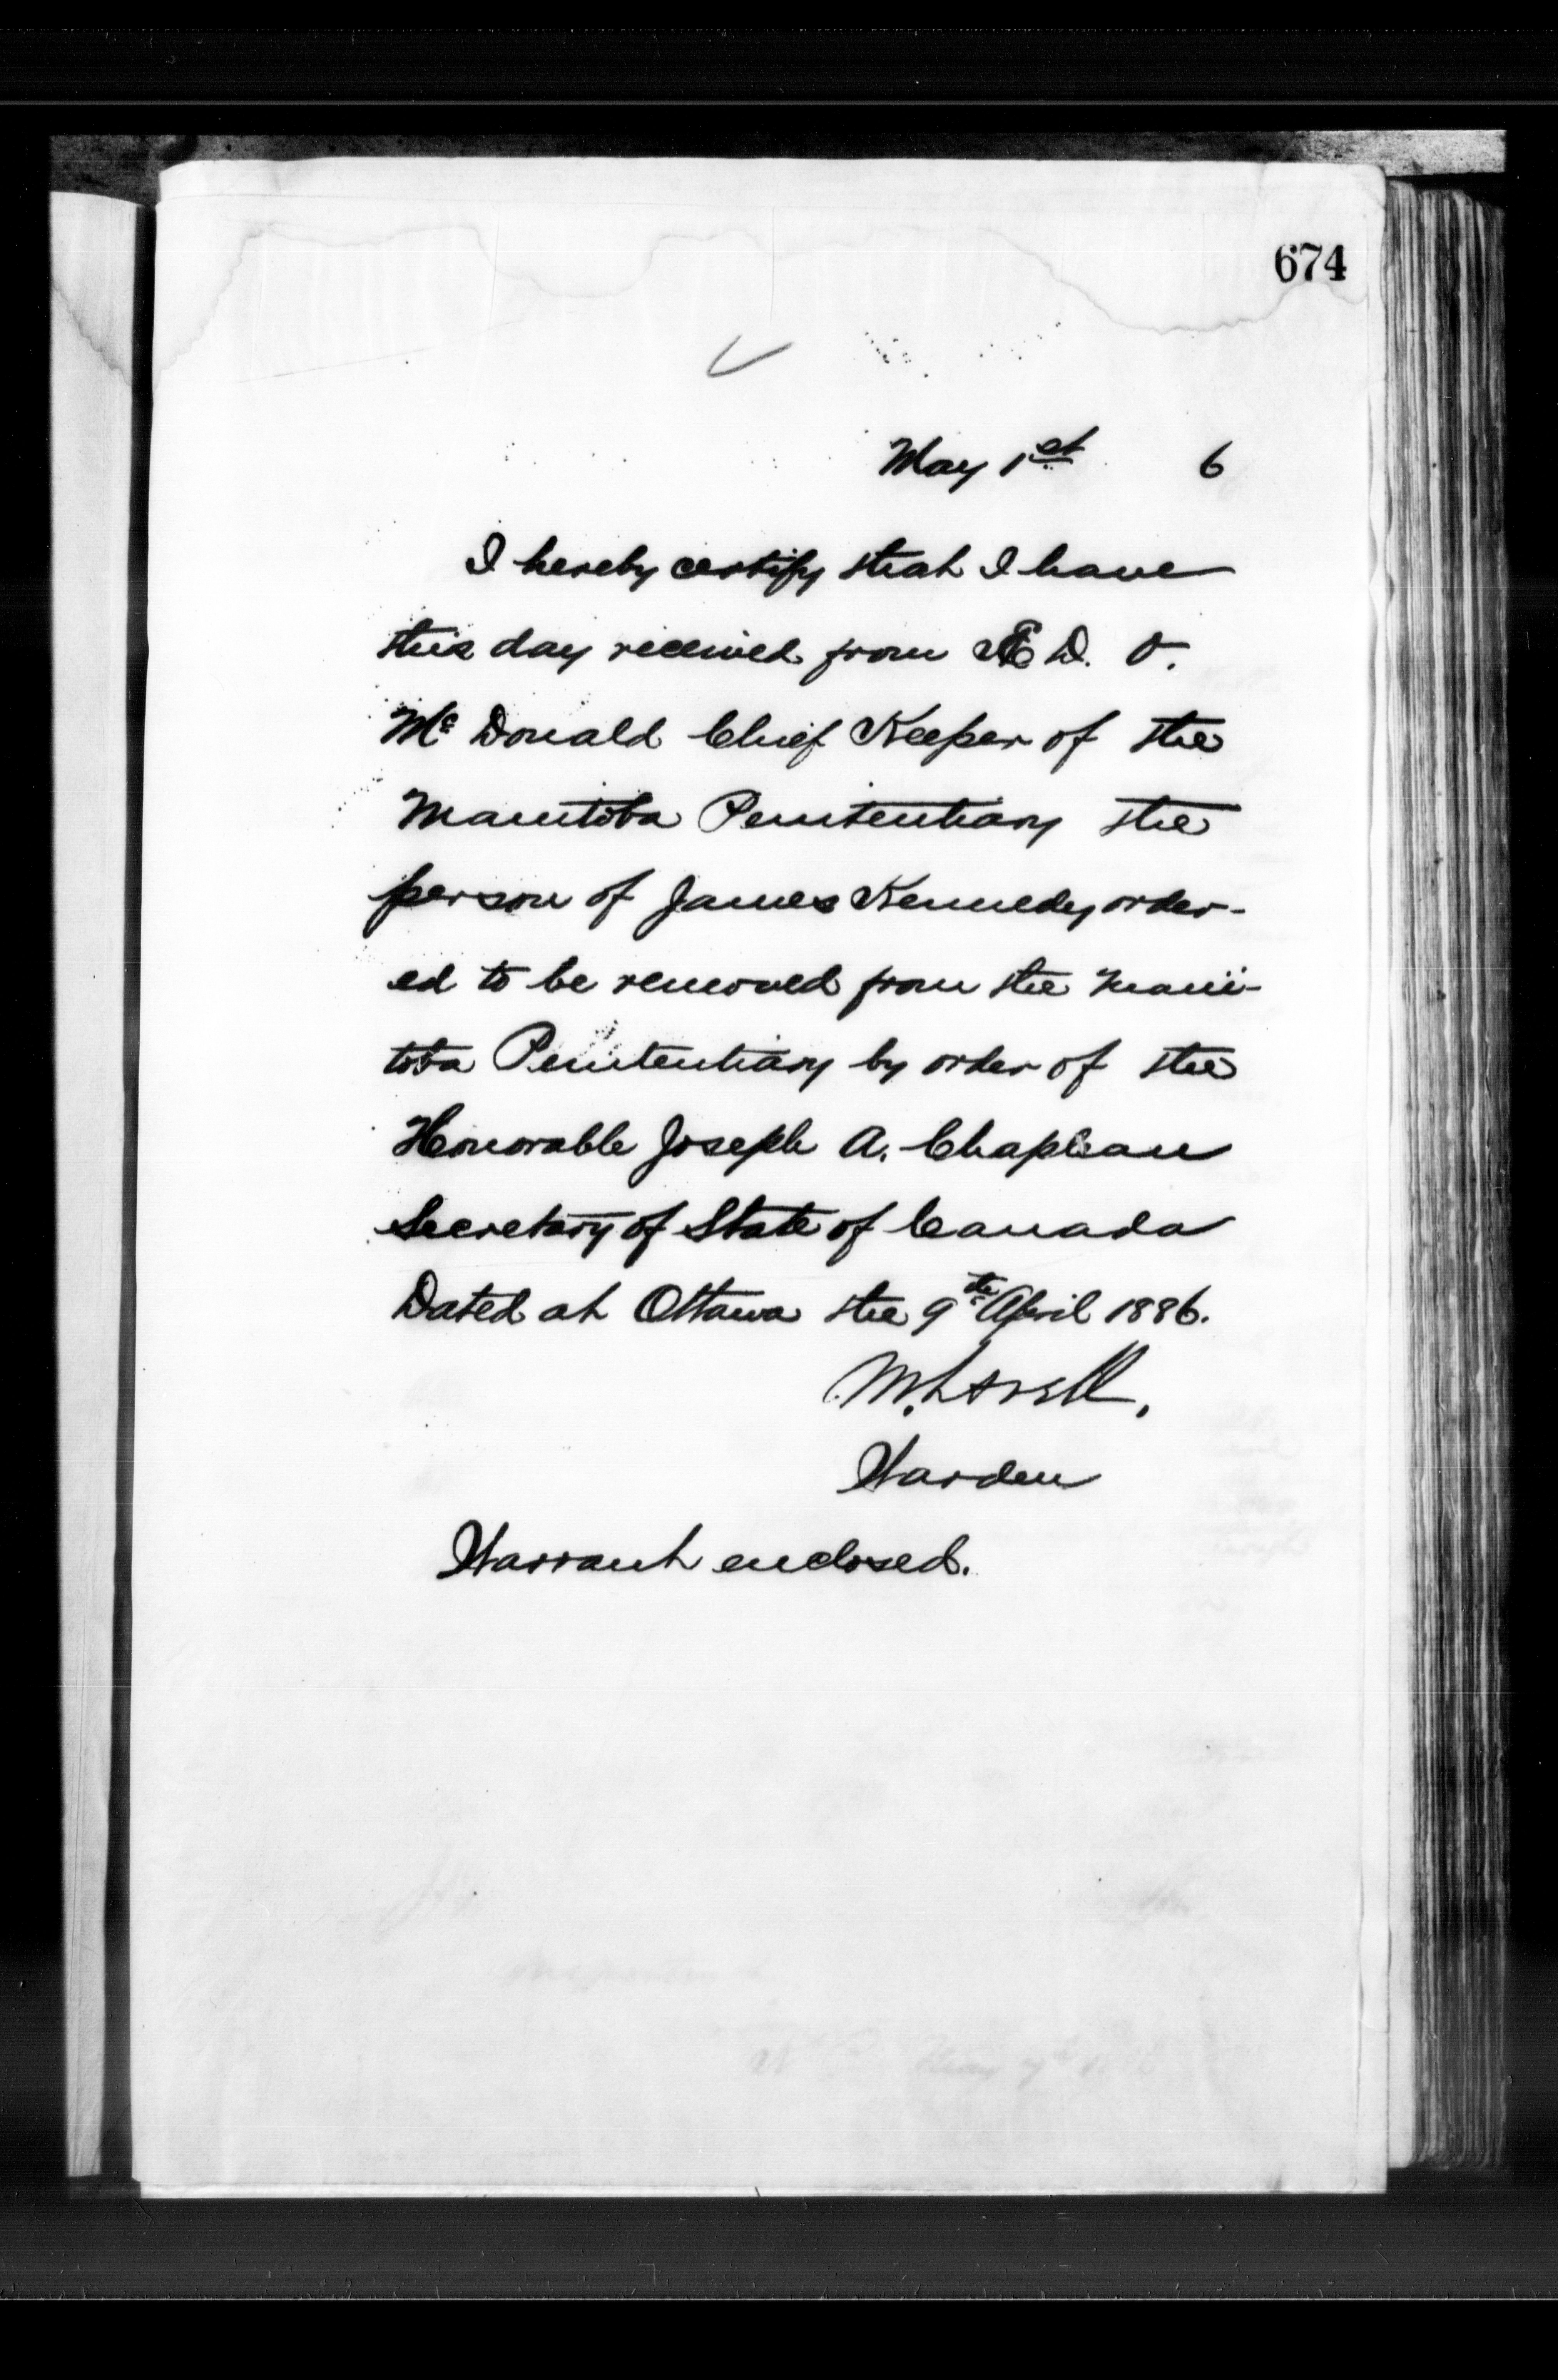 674
May 1st 6
I hereby certify that I have
this day received from D. O.
Mc Donald Chief Keeper of the
Manitoba Penitentiary the
person of James Kennedy order-
ed to be removed from the Mani-
toba Penitentiary by order of the
Honorable Joseph A. Chapleau
Secretary of State of Canada
Dated at Ottawa the 9th April 1886.
M. Lavell,
Warden
Warrant enclosed.